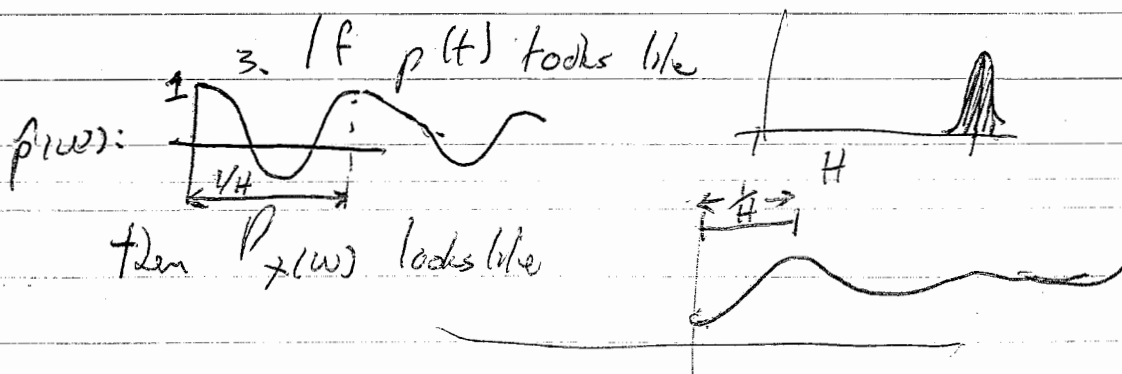 3. If p(t) looks like
1
p̂(ω):
1/H
H
1/H
then P_x(ω) looks like